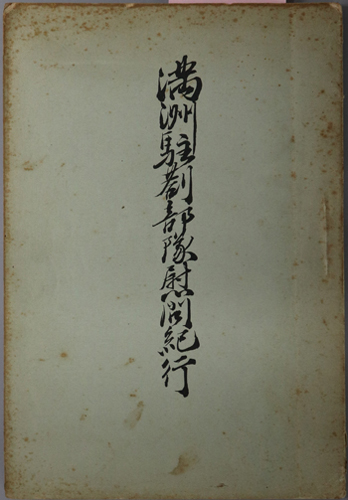 満洲駐剳部隊慰問紀行